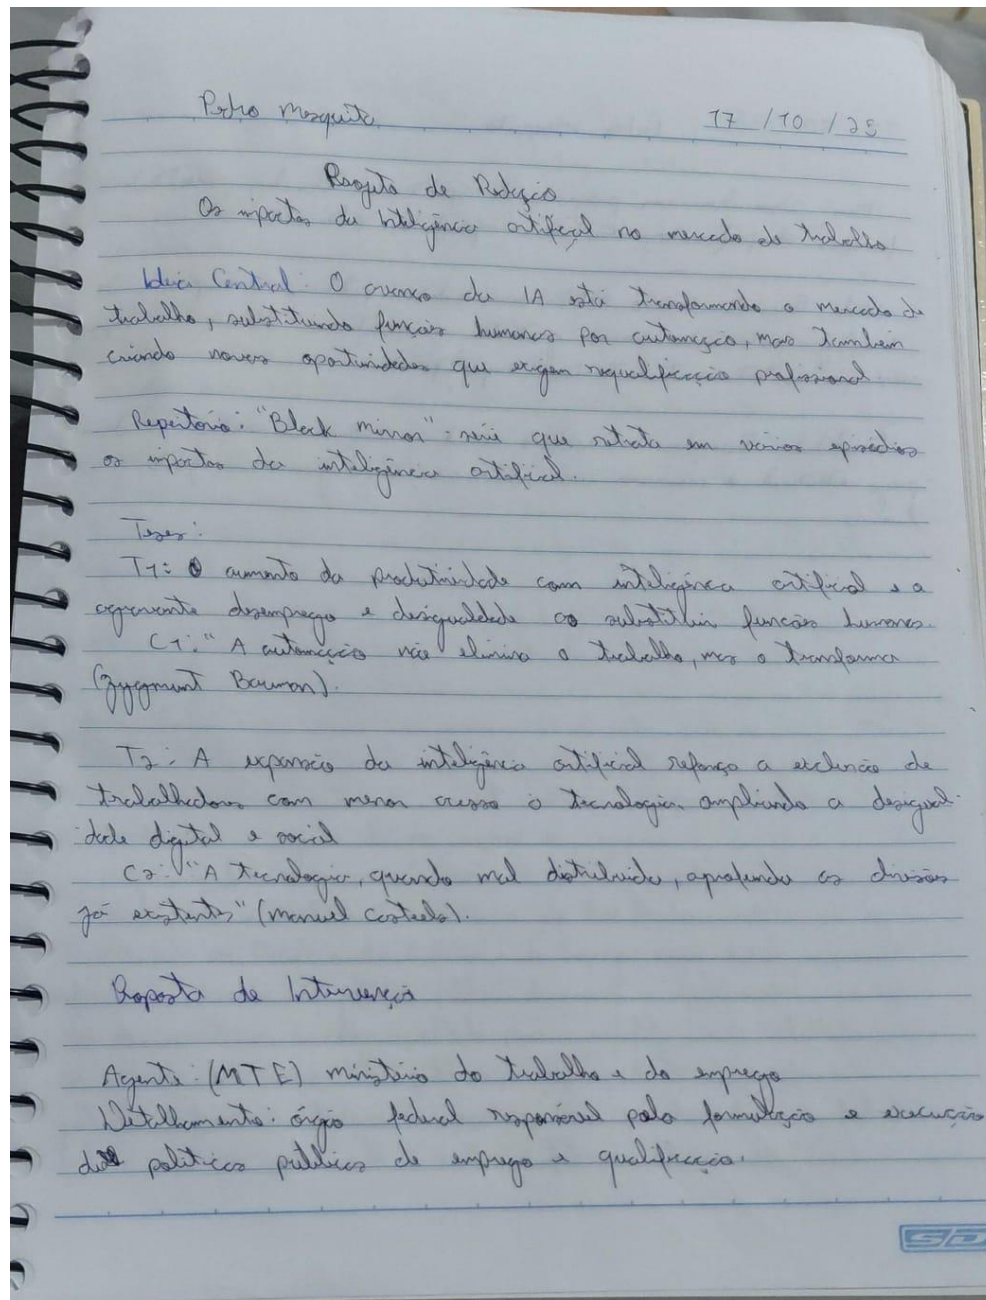 Pedro Mesquita 17/10/25
Projeto de Redação
Os impactos da Inteligência artificial no mercado de trabalho
Ideia Central: O avanço da IA está transformando o mercado de
trabalho, substituindo funções humanas por automação, mas também
criando novas oportunidades que exigem requalificação profissional.
Repertório: "Black mirror" - série que retrata em vários episódios
os impactos da inteligência artificial.
Teses:
T1: O aumento da produtividade com inteligência artificial e o
agravante desemprego e desigualdade ao substituir funções humanas.
C1: "A automação não elimina o trabalho, mas o transforma
(Zygmunt Bauman).
T2: A expansão da inteligência artificial reforça a exclusão de
trabalhadores com menor acesso à tecnologia, ampliando a desigual-
dade digital e social
C2: "A tecnologia, quando mal distribuída, aprofunda as divisões
já existentes" (Manuel Castells).
Proposta de Intervenção
Agente: (MTE) ministério do trabalho e do emprego
Detalhamento: órgão federal responsável pela formulação e execução
das políticas públicas de emprego e qualificação.
S/D